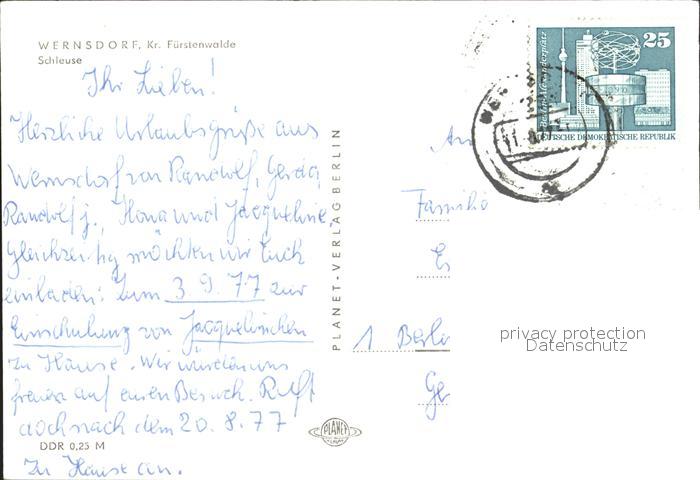 WERNSDORF, Kr. Fürstenwalde
Schleuse
Ihr Lieben!
Herzliche Urlaubsgrüße aus
Wernsdorf von Randolf, Gerda,
Randolf j., Ilona und Jacqueline.
Gleichzeitig möchten wir Euch
einladen: Zum 3. 9. 77 zur
Einschulung von Jacquelinchen
zu Hause. Wir würden uns
freuen auf euren Besuch. Ruft
doch nach dem 20. 8. 77
DDR 0,25 M
zu Hause an.
PLANET-VERLAG BERLIN
PLANET
25
Berlin-Alexanderplatz
DEUTSCHE DEMOKRATISCHE REPUBLIK
An
Familie
1 Berli
Ge
privacy protection
Datenschutz